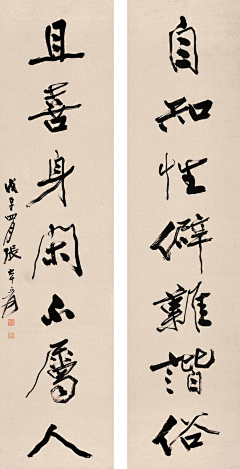 自知性僻難諧俗
且喜身閑不屬人
戊子四月張大千爰